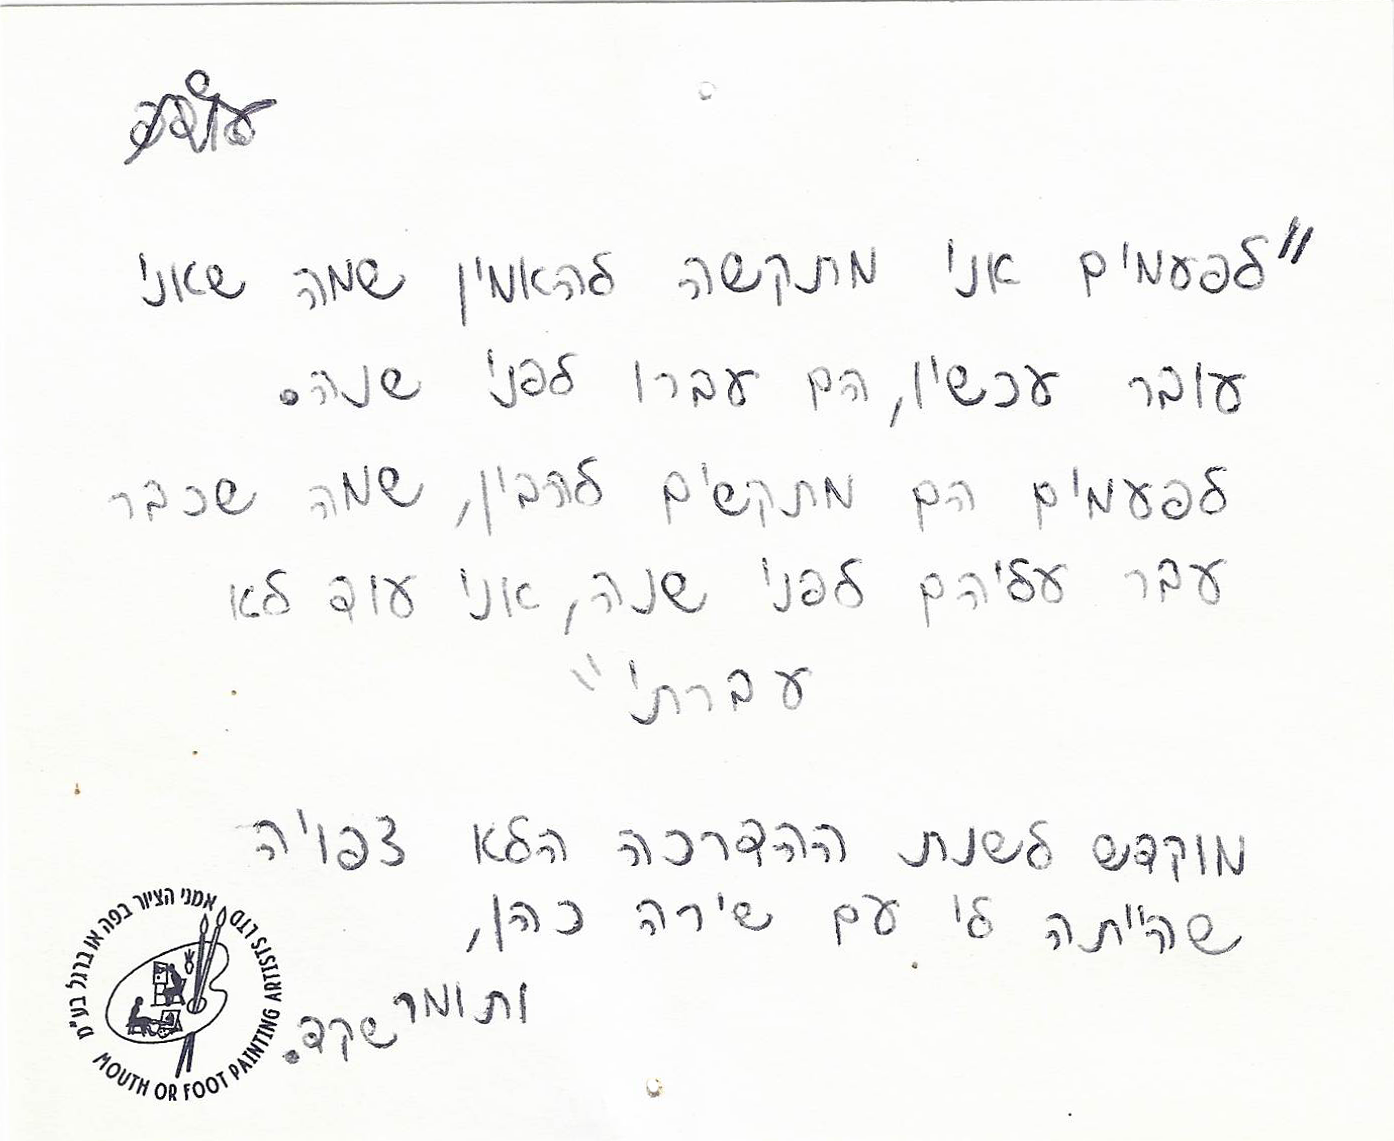 "לפעמים אני מתקשה להאמין שמה שאני
עובר עכשיו, הם עברו לפני שנה.
לפעמים הם מתקשים להבין, שמה שכבר
עבר עליהם לפני שנה, אני עוד לא
עברתי"
מוקדש לשנת ההדרכה הלא צפויה
שהייתה לי עם שירה כהן,
ותומר שקד.
אמני הציור בפה או ברגל בע"מ
MOUTH OR FOOT PAINTING ARTISTS LTD